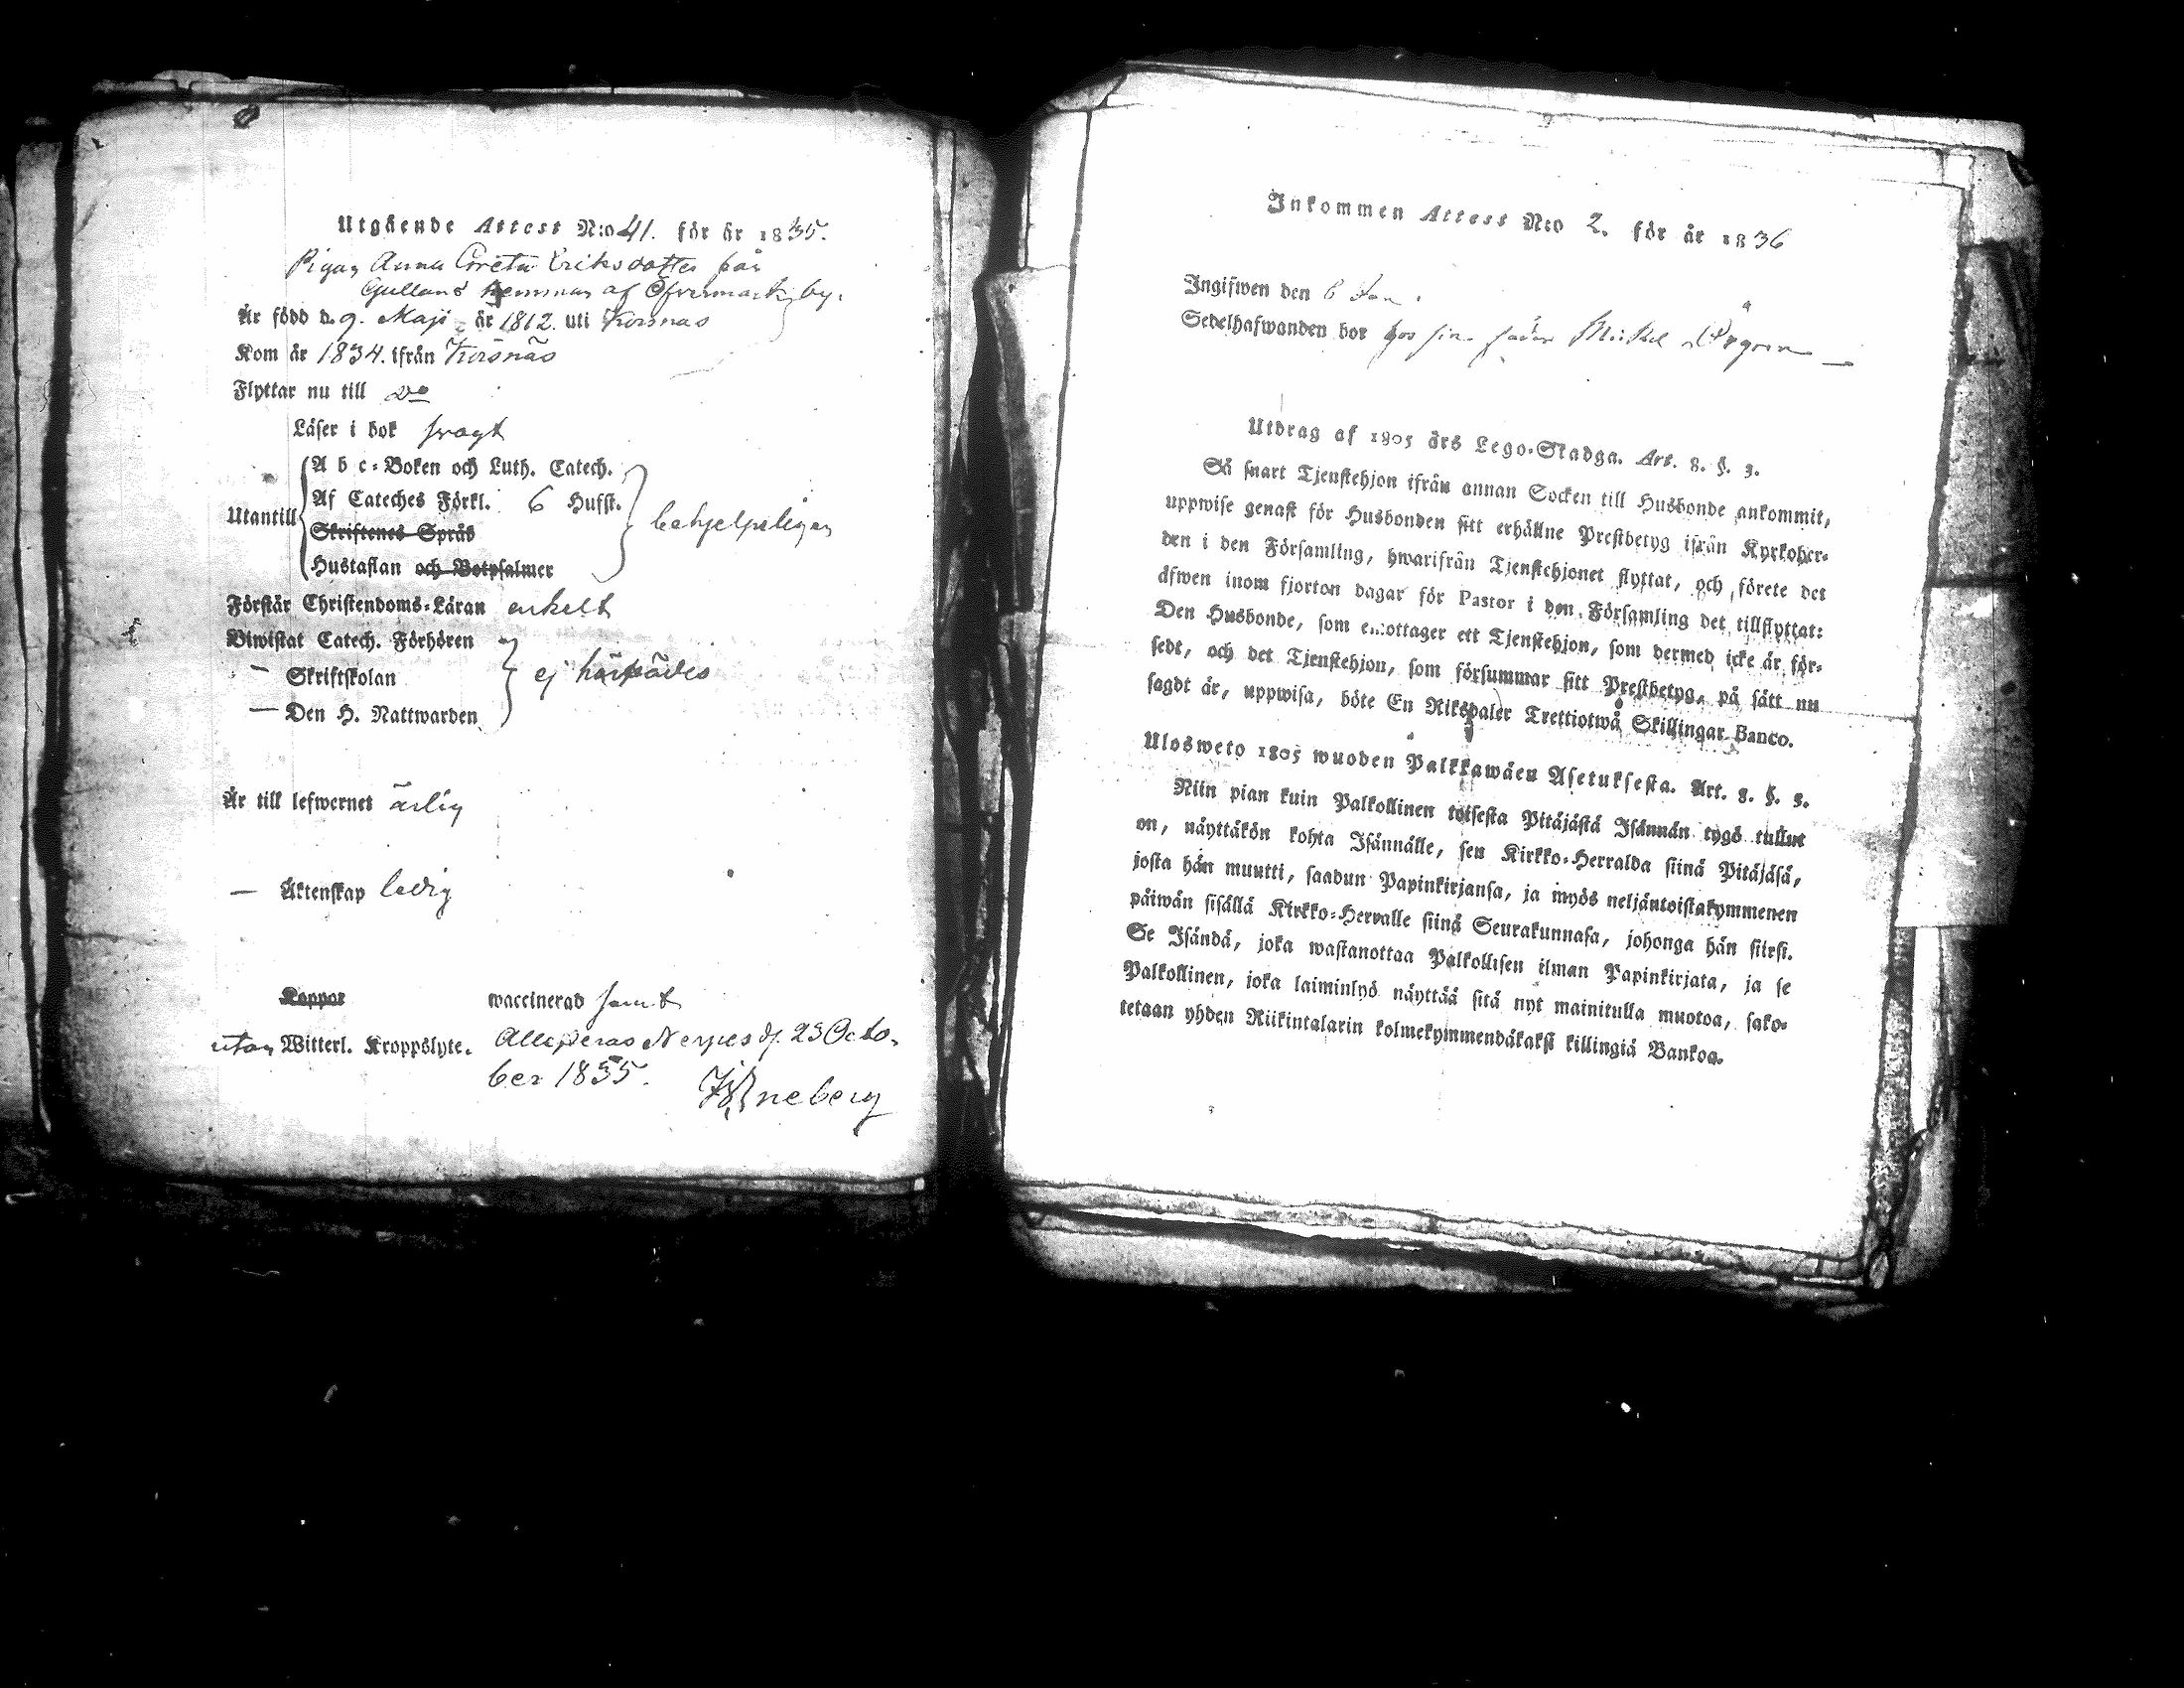 Utgående Attest N:o 41. för år 1835.
Pigan Anna Greta Eriksdotter från
Gullans hemman af Öfvermark by.
Är född d. 9. Maji år 1812. uti Korsnäs
Kom år 1834. ifrån Korsnäs
Flyttar nu till Do
Läser i bok svagt
A b c-Boken och Luth. Catech.
Af Cateches Förkl. 6 Hufst.
Utantill
Skriftenes Språk
Hustaflan och Botpsalmer
behjelpeligen
Förstår Christendoms-Läran enkelt
Biwistat Catech. Förhören
— Skriftskolan
ej härstädes
— Den H. Nattwarden
Är till lefwernet ärlig
— Äktenskap ledig
Koppor waccinerad samt
utan Witterl. Kroppslyte. Attesteras Nerpes d. 23 Octo-
ber 1835.
Inkommen Attest N:o 2. för år 1836
Ingifwen den 6 Jan.
Sedelhafwanden bor hos sin fader Michel
Utdrag af 1805 års Lego-Stadga. Art. 8. §. 3.
Så snart Tjenstehjon ifrån annan Socken till Husbonde ankommit,
uppwise genast för Husbonden sitt erhållne Prestbetyg ifrån Kyrkoher-
den i den Församling, hwarifrån Tjenstehjonet flyttat, och förete det
äfwen inom fjorton dagar för Pastor i den Församling det tillflyttat:
Den Husbonde, som emottager ett Tjenstehjon, som dermed icke är för-
sedt, och det Tjenstehjon, som försummar sitt Prestbetyg, på sätt nu
sagdt är, uppwisa, böte En Riksdaler Trettiotwå Skillingar Banco.
Ulosweto 1805 wuoden Palkkawäen Asetuksesta. Art. 8. §. 3.
Niin pian kuin Palkollinen toisesta Pitäjästä Isännän tygö tullut
on, näyttäkön kohta Isännälle, sen Kirkko-Herralda siinä Pitäjäsä,
josta hän muutti, saadun Papinkirjansa, ja myös neljäntoistakymmenen
päiwän sisällä Kirkko-Herralle siinä Seurakunnasa, johonga hän siirsi.
Se Isändä, joka wastanottaa Palkollisen ilman Papinkirjata, ja se
Palkollinen, joka laiminlyö näyttää sitä nyt mainitulla muotoa, sako-
tetaan yhden Riikintalarin kolmekymmendäkaksi killingiä Bankoa.